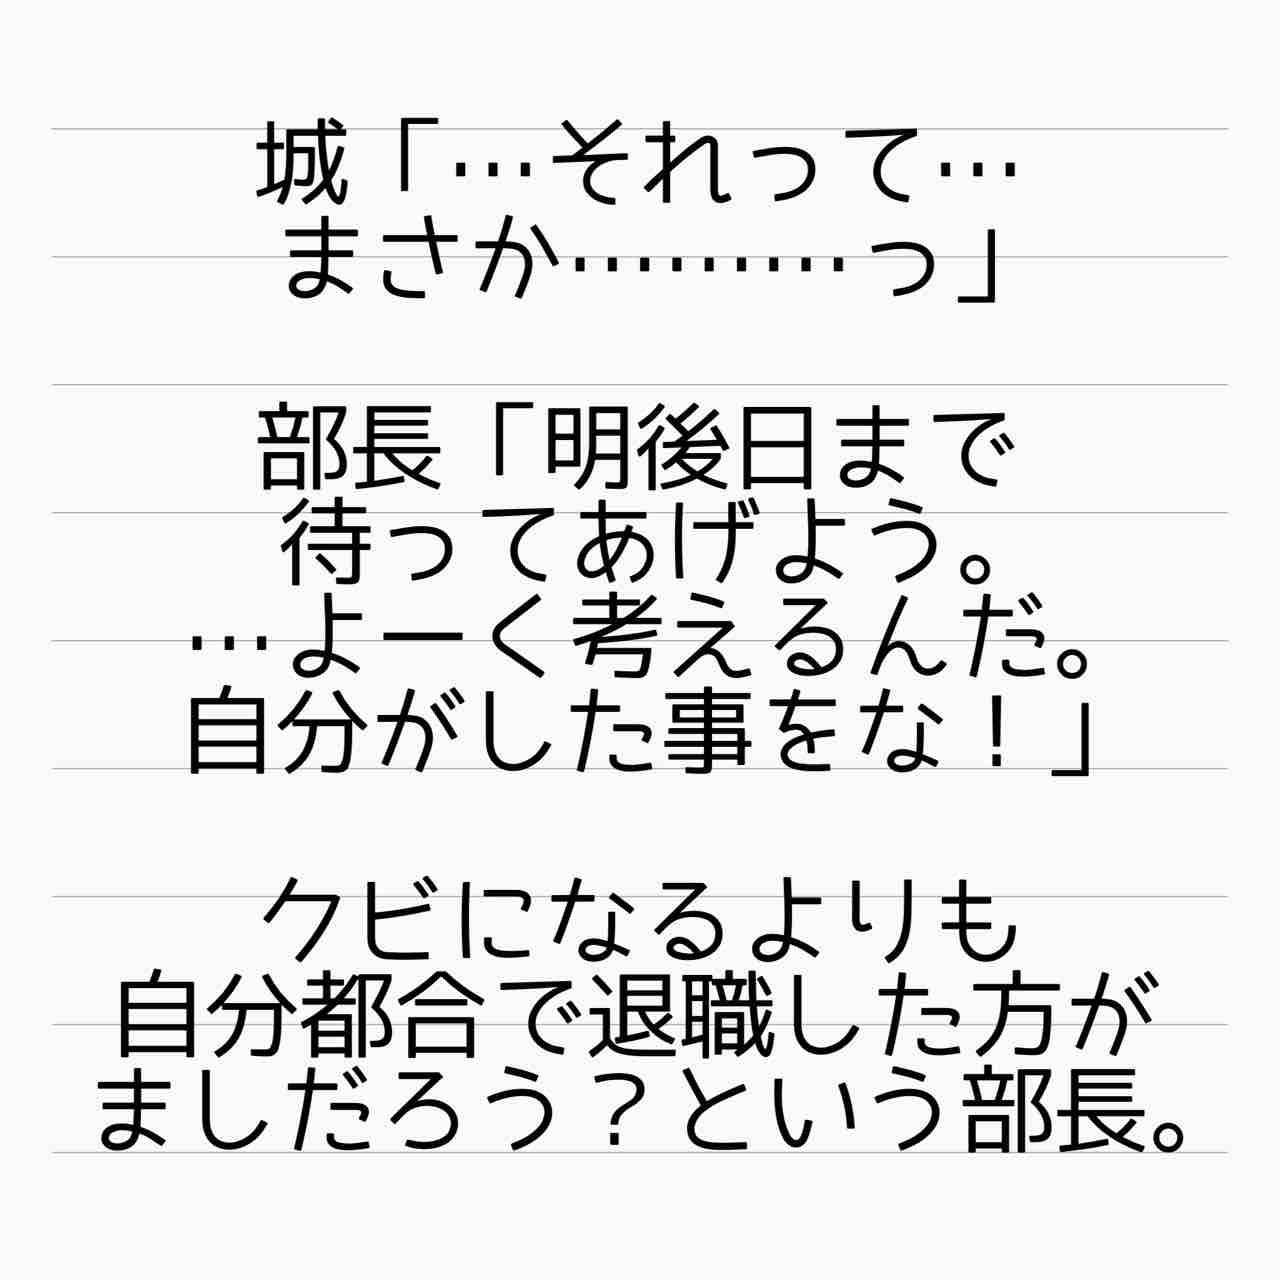 城「…それって…
まさか………っ」
部長「明後日まで
待ってあげよう。
…よーく考えるんだ。
自分がした事をな！」
クビになるよりも
自分都合で退職した方が
ましだろう？という部長。